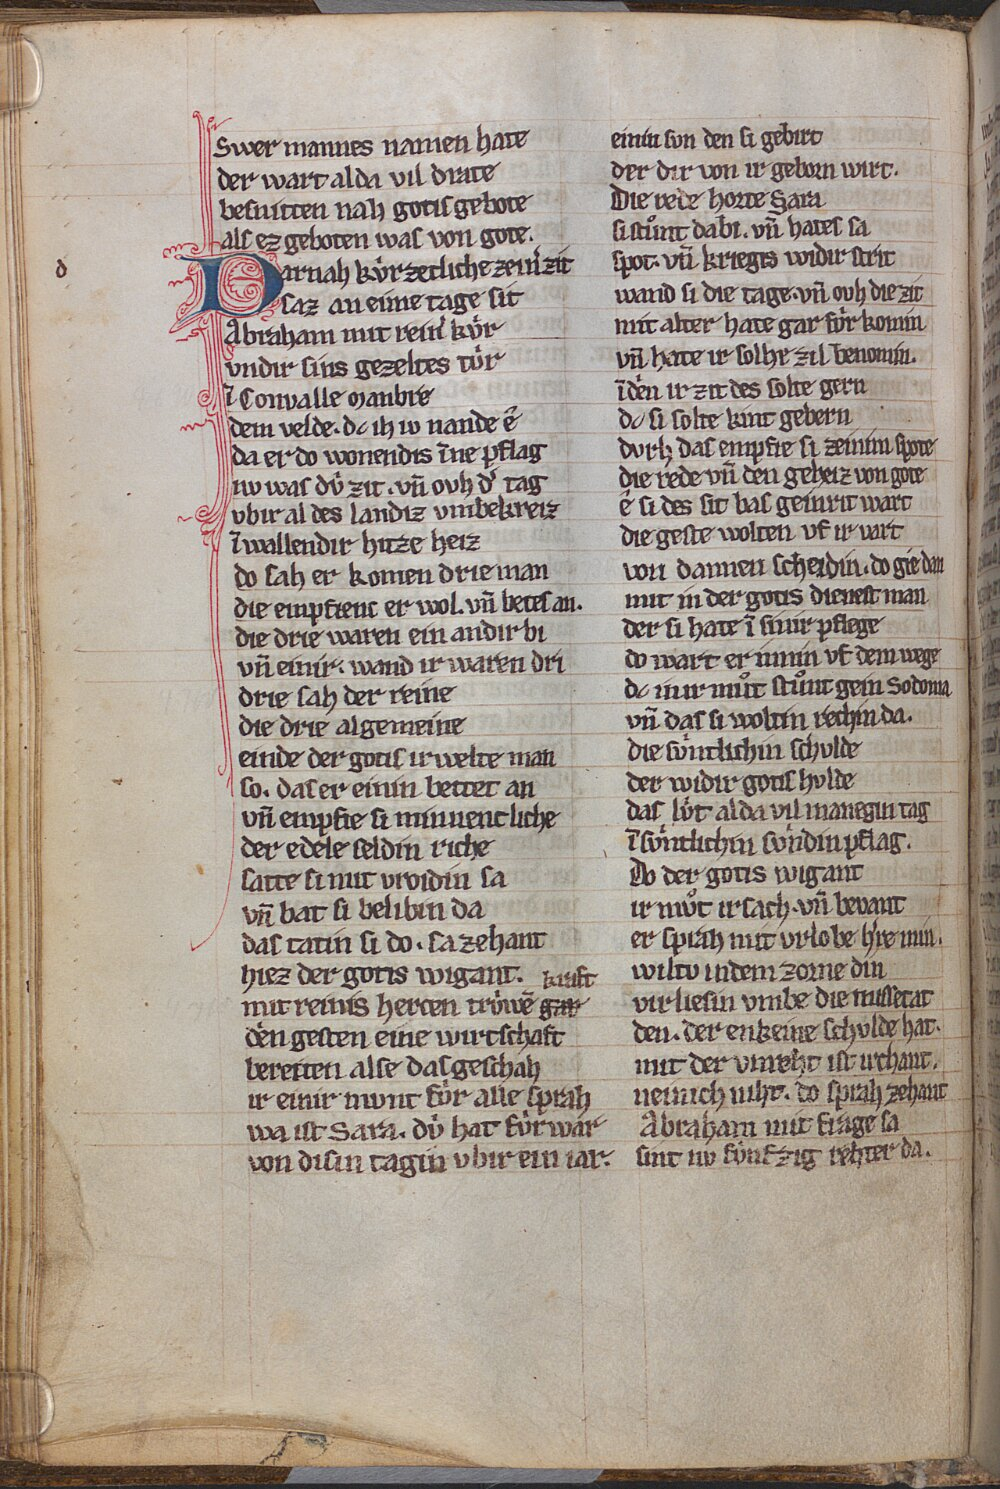 Swer mannes namen hate
der wart alda vil drate
besnitten nah gotis gebote
als ez geboten was von gote.
d
Darnah kv̊rzecliche zein̾ zit
saz an eime tage sit
Abraham mit rein̾ kv̊r
vndir sins gezeltes tv̊r
ī Convalle manbre
dem velde. dc ih iv nande ē
da er do wonendis īne pflag
nv was dv̊ zit. vn̄ ovh d̾ tag
vbir al des landiz vmbekreiz
ī wallendir hitze heiz
do sah er komen drie man
die empfienc er wol. vn̄ betes an.
die drie waren ein andir bi
vn̄ einir. wand ir waren dri
drie sah der reine
die drie algemeine
einde der gotis irwelte man
so. das er einin bettet an
vn̄ empfie si minnencliche
der edele seldin riche
satte si mit vroidin sa
vn̄ bat si belibin da
das tatin si do. sa zehant
hiez der gotis wigant.
kraft
mit reinis hercen trv̊wē gar
den gesten eine wirtschaft
bereiten alse das geschah
ir einir mvnt fv̊r alle sprah
wa ist Sara. dv̊ hat fv̊r war
von disin tagin vbir ein iar.
einin svn den si gebirt
der dir von ir geborn wirt.
Die rede horte Sara
si stv̊nt dabi. vn̄ hates sa
spot. vn̄ kriegts widir strit
wand si die tage. vn̄ ovh die zit
mit alter hate gar fv̊r komin
vn̄ hate ir solhe zil benomin.
ī den ir zit des solte gern
dc si solte kint gebern
dvrh das empfie si zeinim spote
die rede vn̄ den geheiz von gote
ē si des sit bas geinrit wart
die geste wolten vf ir vart
von dannen scheidin. do gie dan
mit in der gotis dienest man
der si hate ī sinir pflege
do wart er innin vf dem wege
dc inir mv̊t stv̊nt gein Sodoma
vn̄ das si woltin rechin da.
die sv̊ntlichin schvlde
der widir gotis hvlde
das lv̊t alda vil manegin tag
ī sv̊ntlichin sv̊ndin pflag.
Do der gotis wigant
ir mv̊t ir sach. vn̄ bevant
er sprah mit vrlobe h̾re min.
wiltv in dem zorne din
virliesin vmbe die missetat
den. der enkeine schvlde hat.
mit der vnreht ist irchant.
nein ich niht. do sprah zehant
Abraham mit frage sa
sint nv fv̊nfzig rehter da.